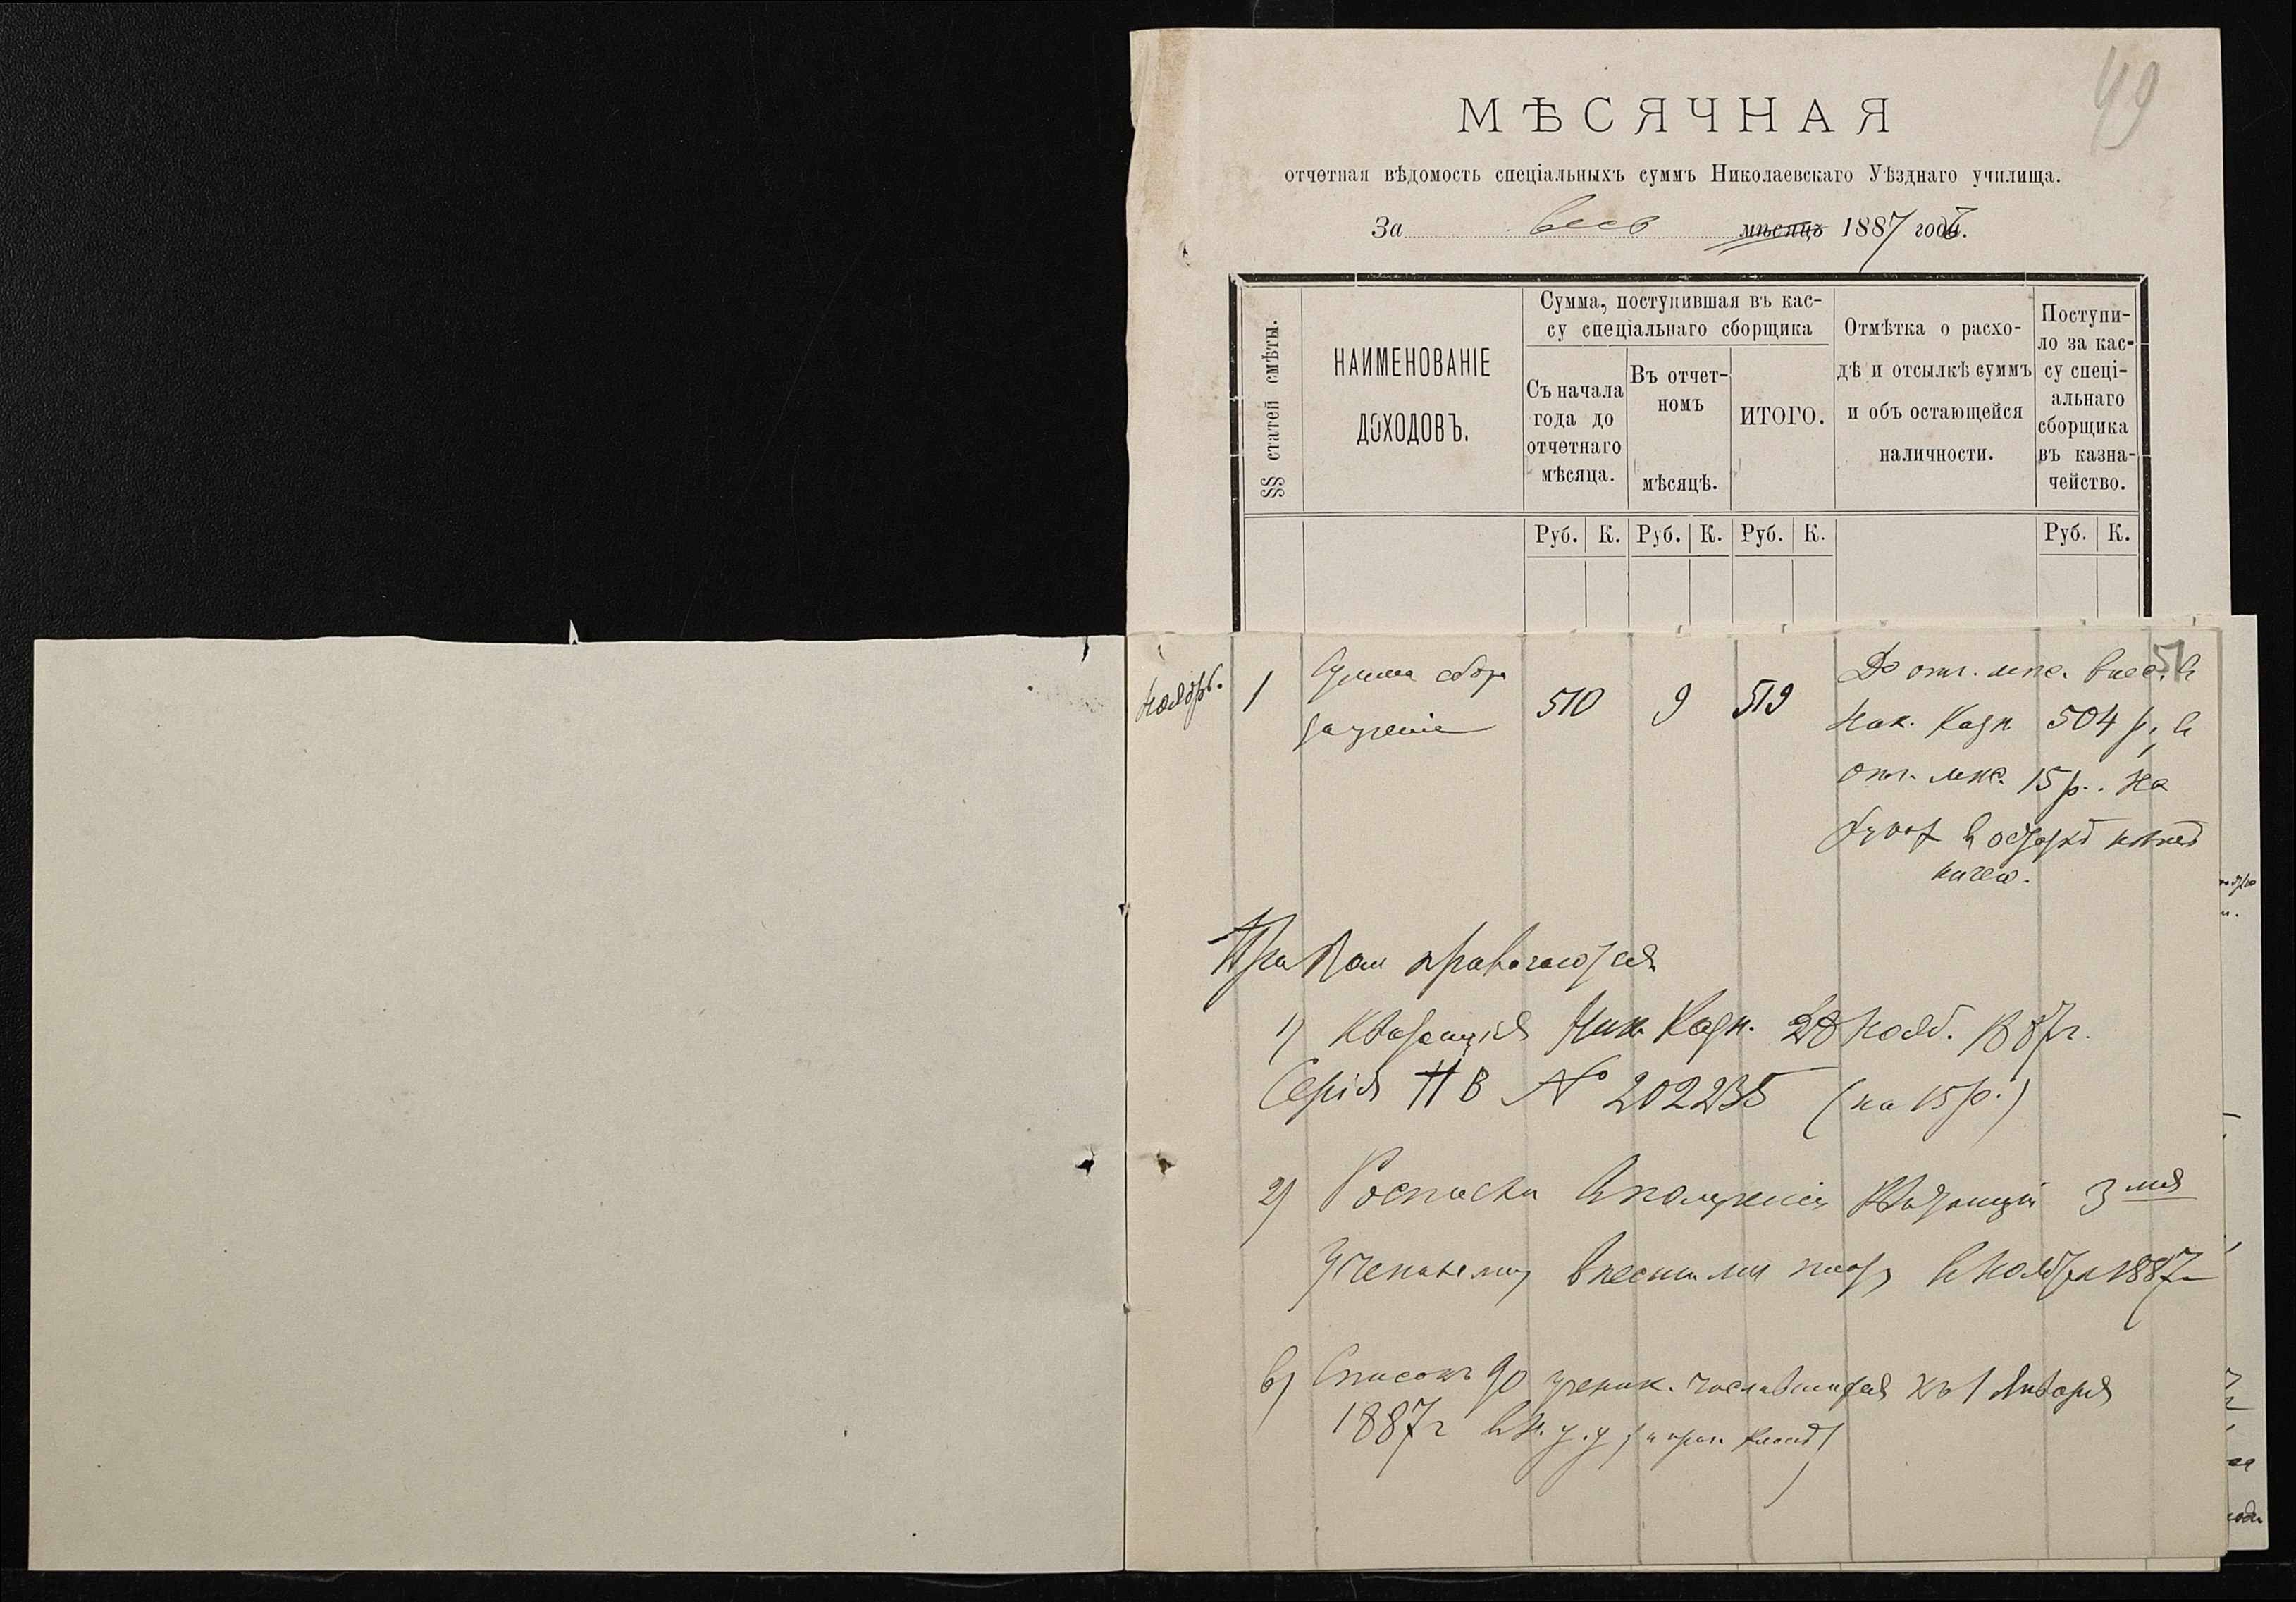 49
МѢСЯЧНАЯ
отчетная вѣдомость спеціальныхъ суммъ Николаевскаго Уѣзднаго училища.
За весь мѣсяцъ 1887 годъ.
SS статей смѣты.
НАИМЕНОВАНІЕ
ДОХОДОВЪ.
Сумма, поступившая въ кас-
су спеціальнаго сборщика
Съ начала
года до
отчетнаго
мѣсяца.
Въ отчет-
номъ
мѣсяцѣ.
ИТОГО.
Отмѣтка о расхо-
дѣ и отсылкѣ суммъ
и объ остающейся
наличности.
Поступи-
ло за кас-
су спеці-
альнаго
сборщика
въ казна-
чейство.
Руб. К. Руб. К. Руб. К. Руб. К.
51
Ноябрь. 1 Сумма сбора
за ученіе 510 9 519
До отч. мѣс. внес. в
Ник. Казн 504 р., в
отч. мѣс. 15 р. На
ничего.
При
1) Квитанція Ник Казн. 28 Нояб. 1887 г.
Серія НВ № 202235 (на 15 р.)
2) Росписки в полученіи квитанцій 3 мя
Учениками внесшими в Ноябрѣ 1887
в) Списокъ 90 ученик. къ 1 Января
1887 г в Н. у. у